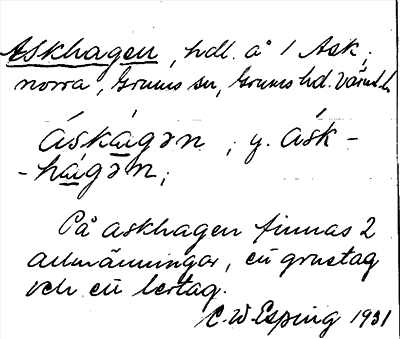 Askhagen, hdl. å 1 Ask,
norra, Grums sn, Grums hd. Värml.
áskágən, y. ásk-
-hágən;
På askhagen finnas 2
allmänningar, en grustag
och en lertag.
C. W. Esping 1931